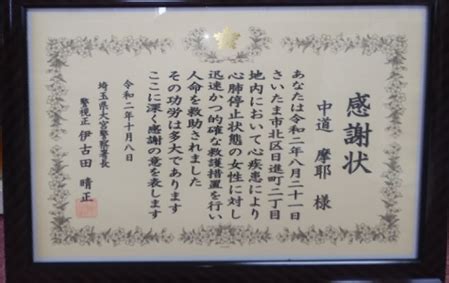 感謝状
中道 摩耶 様
あなたは令和二年八月二十一日
さいたま市北区日進町二丁目
地内において心疾患により
心肺停止状態の女性に対し
迅速かつ的確な救護措置を行い
人命を救助されました
その功労は多大であります
ここに深く感謝の意を表します
令和二年十月八日
埼玉県大宮警察署長
警視正 伊古田 晴正